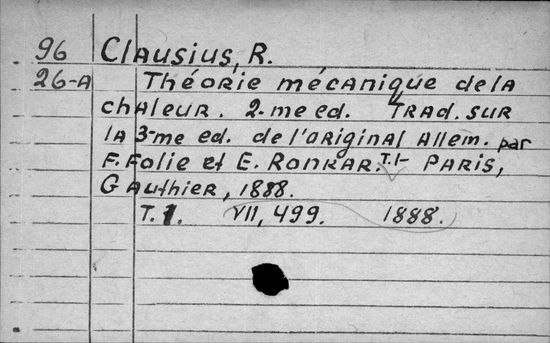 96 Clausius, R.
26-A Théorie mécanique de la
chaleur. 2-me ed. Trad. sur
la 3-me ed. de l'original Allem. par
F. Folie et E. Ronkar. T.1- Paris,
Gauthier, 1888.
T. 1. VII, 499. 1888.